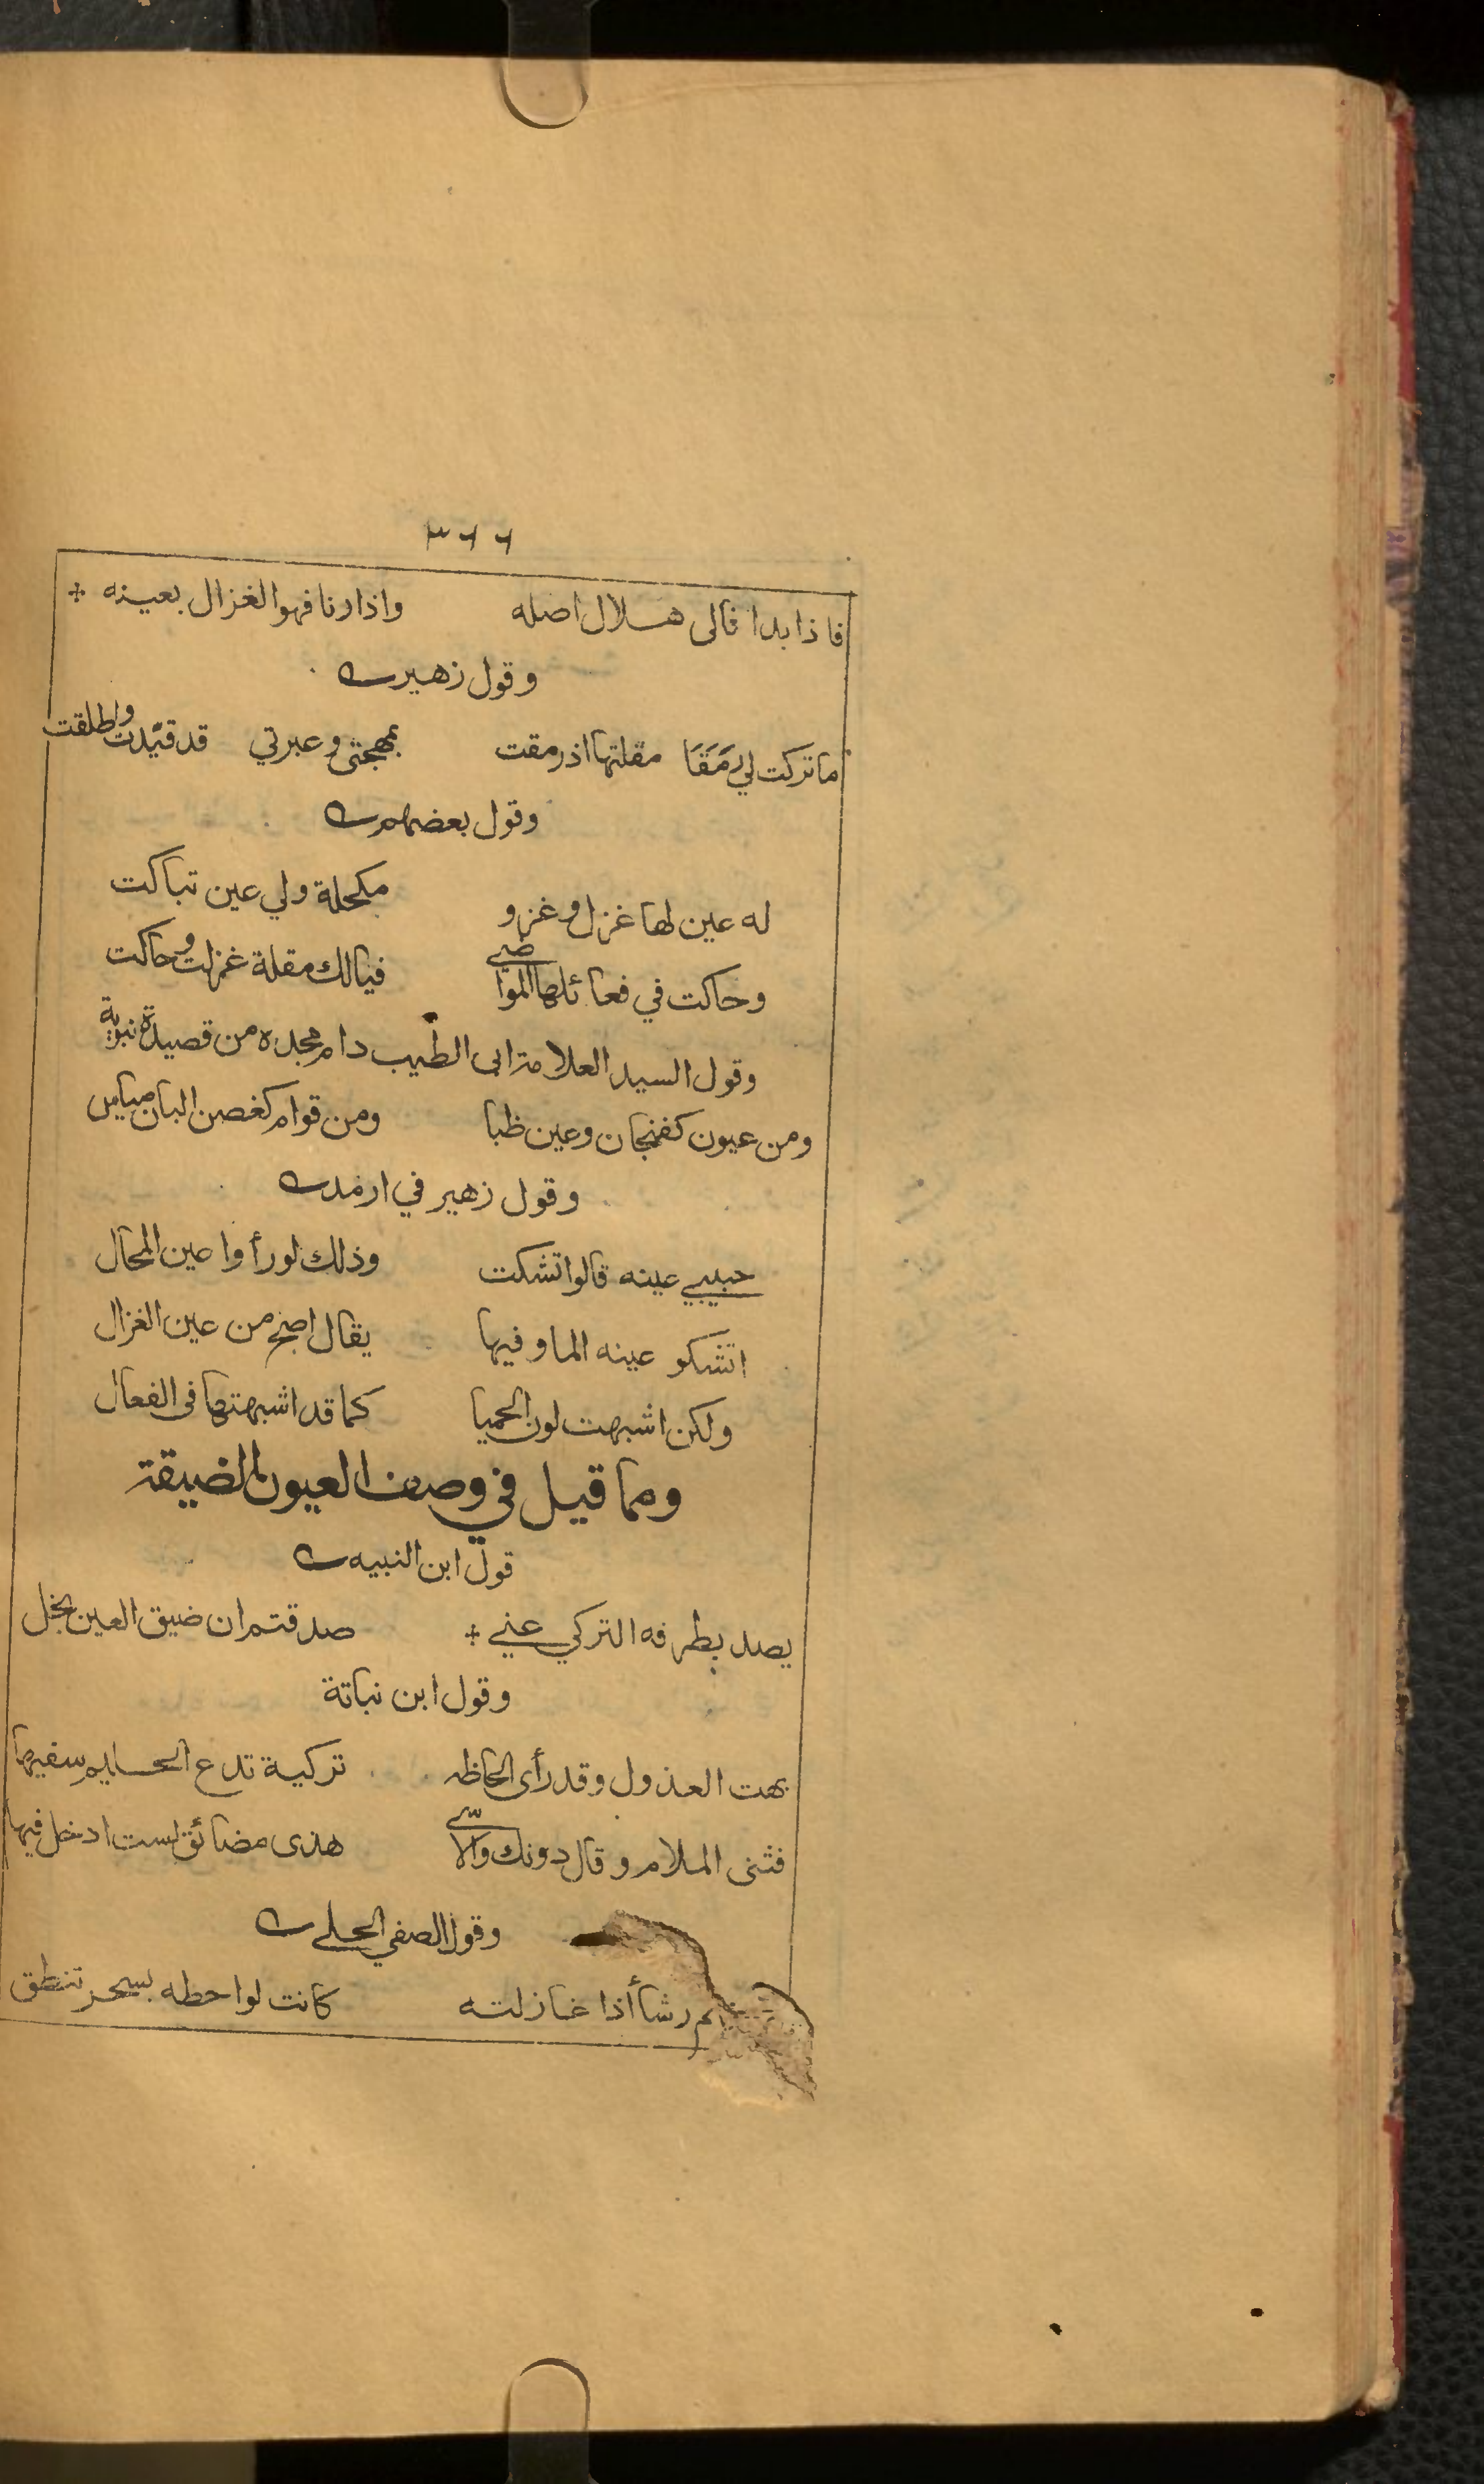 ٣٦٦
فاذا بدا فالى هلال اصله واذا رنا فهو الغزال بعينه
وقول زهير
ما تركت لي رَمَقَا مقلتها اذ رمقت بمهجتى وعبرتي قد قيّدت واطلقت
وقول بعضهم
له عين لها غزل وغزو مكحلة ولي عين تباكت
وحاكت في فعائلها المواضي فيالك مقلة غزلت وحاكت
وقول السيد العلامة ابى الطيب دام مجده من قصيدة نبوية
ومن عيون كفنجان وعين ظبا ومن قوام كغصن البان مياس
وقول زهير في ارمد
حبيبي عينه قالوا تشكت وذلك لو رأوا عين المحال
اتشكو عينه الما وفيها يقال اصح من عين الغزال
ولكن اشبهت لون الحميا كما قد اشبهتها فى الفعال
ومما قيل في وصف العيون الضيقة
قول ابن النبيه
يصد بطرفه التركي عني صدقتم ان ضيق العين بخل
وقول ابن نباتة
بهت العذول وقد رأى الحاظها تركية تدع الحليم سفيها
فثنى الملام وقال دونك والاسى هذى مضائق لست ادخل فيها
وقول الصفي الحلي
رشأ أذا غازلته كانت لواحظه بسحر تنطق